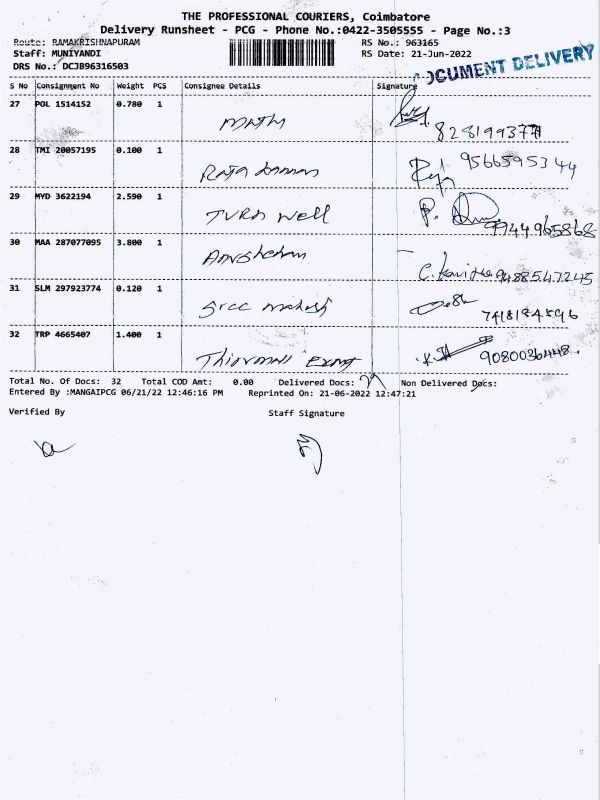 THE PROFESSIONAL COURIERS, Coimbatore
Delivery Runsheet - PCG - Phone No.:0422-3505555 - Page No.:3
Route: RAMAKRISHNAPURAM RS No.: 963165
Staff: MUNIYANDI RS Date: 21-Jun-2022
DRS No.: DCJB96316503
DOCUMENT DELIVERY
S No Consignment No Weight PCS Consignee Details Signature
27 POL 1514152 0.780 1
28 TMI 20057195 0.100 1 Raja 9566595344
29 MYD 3622194 2.590 1 Turn Well P. 9944965868
30 MAA 287077095 3.800 1 C. 9488547245
31 SLM 297923774 0.120 1
32 TRP 4665407 1.400 1 9080036448
Total No. Of Docs: 32 Total COD Amt: 0.00 Delivered Docs: Non Delivered Docs:
Entered By :MANGAIPCG 06/21/22 12:46:16 PM Reprinted On: 21-06-2022 12:47:21
Verified By Staff Signature